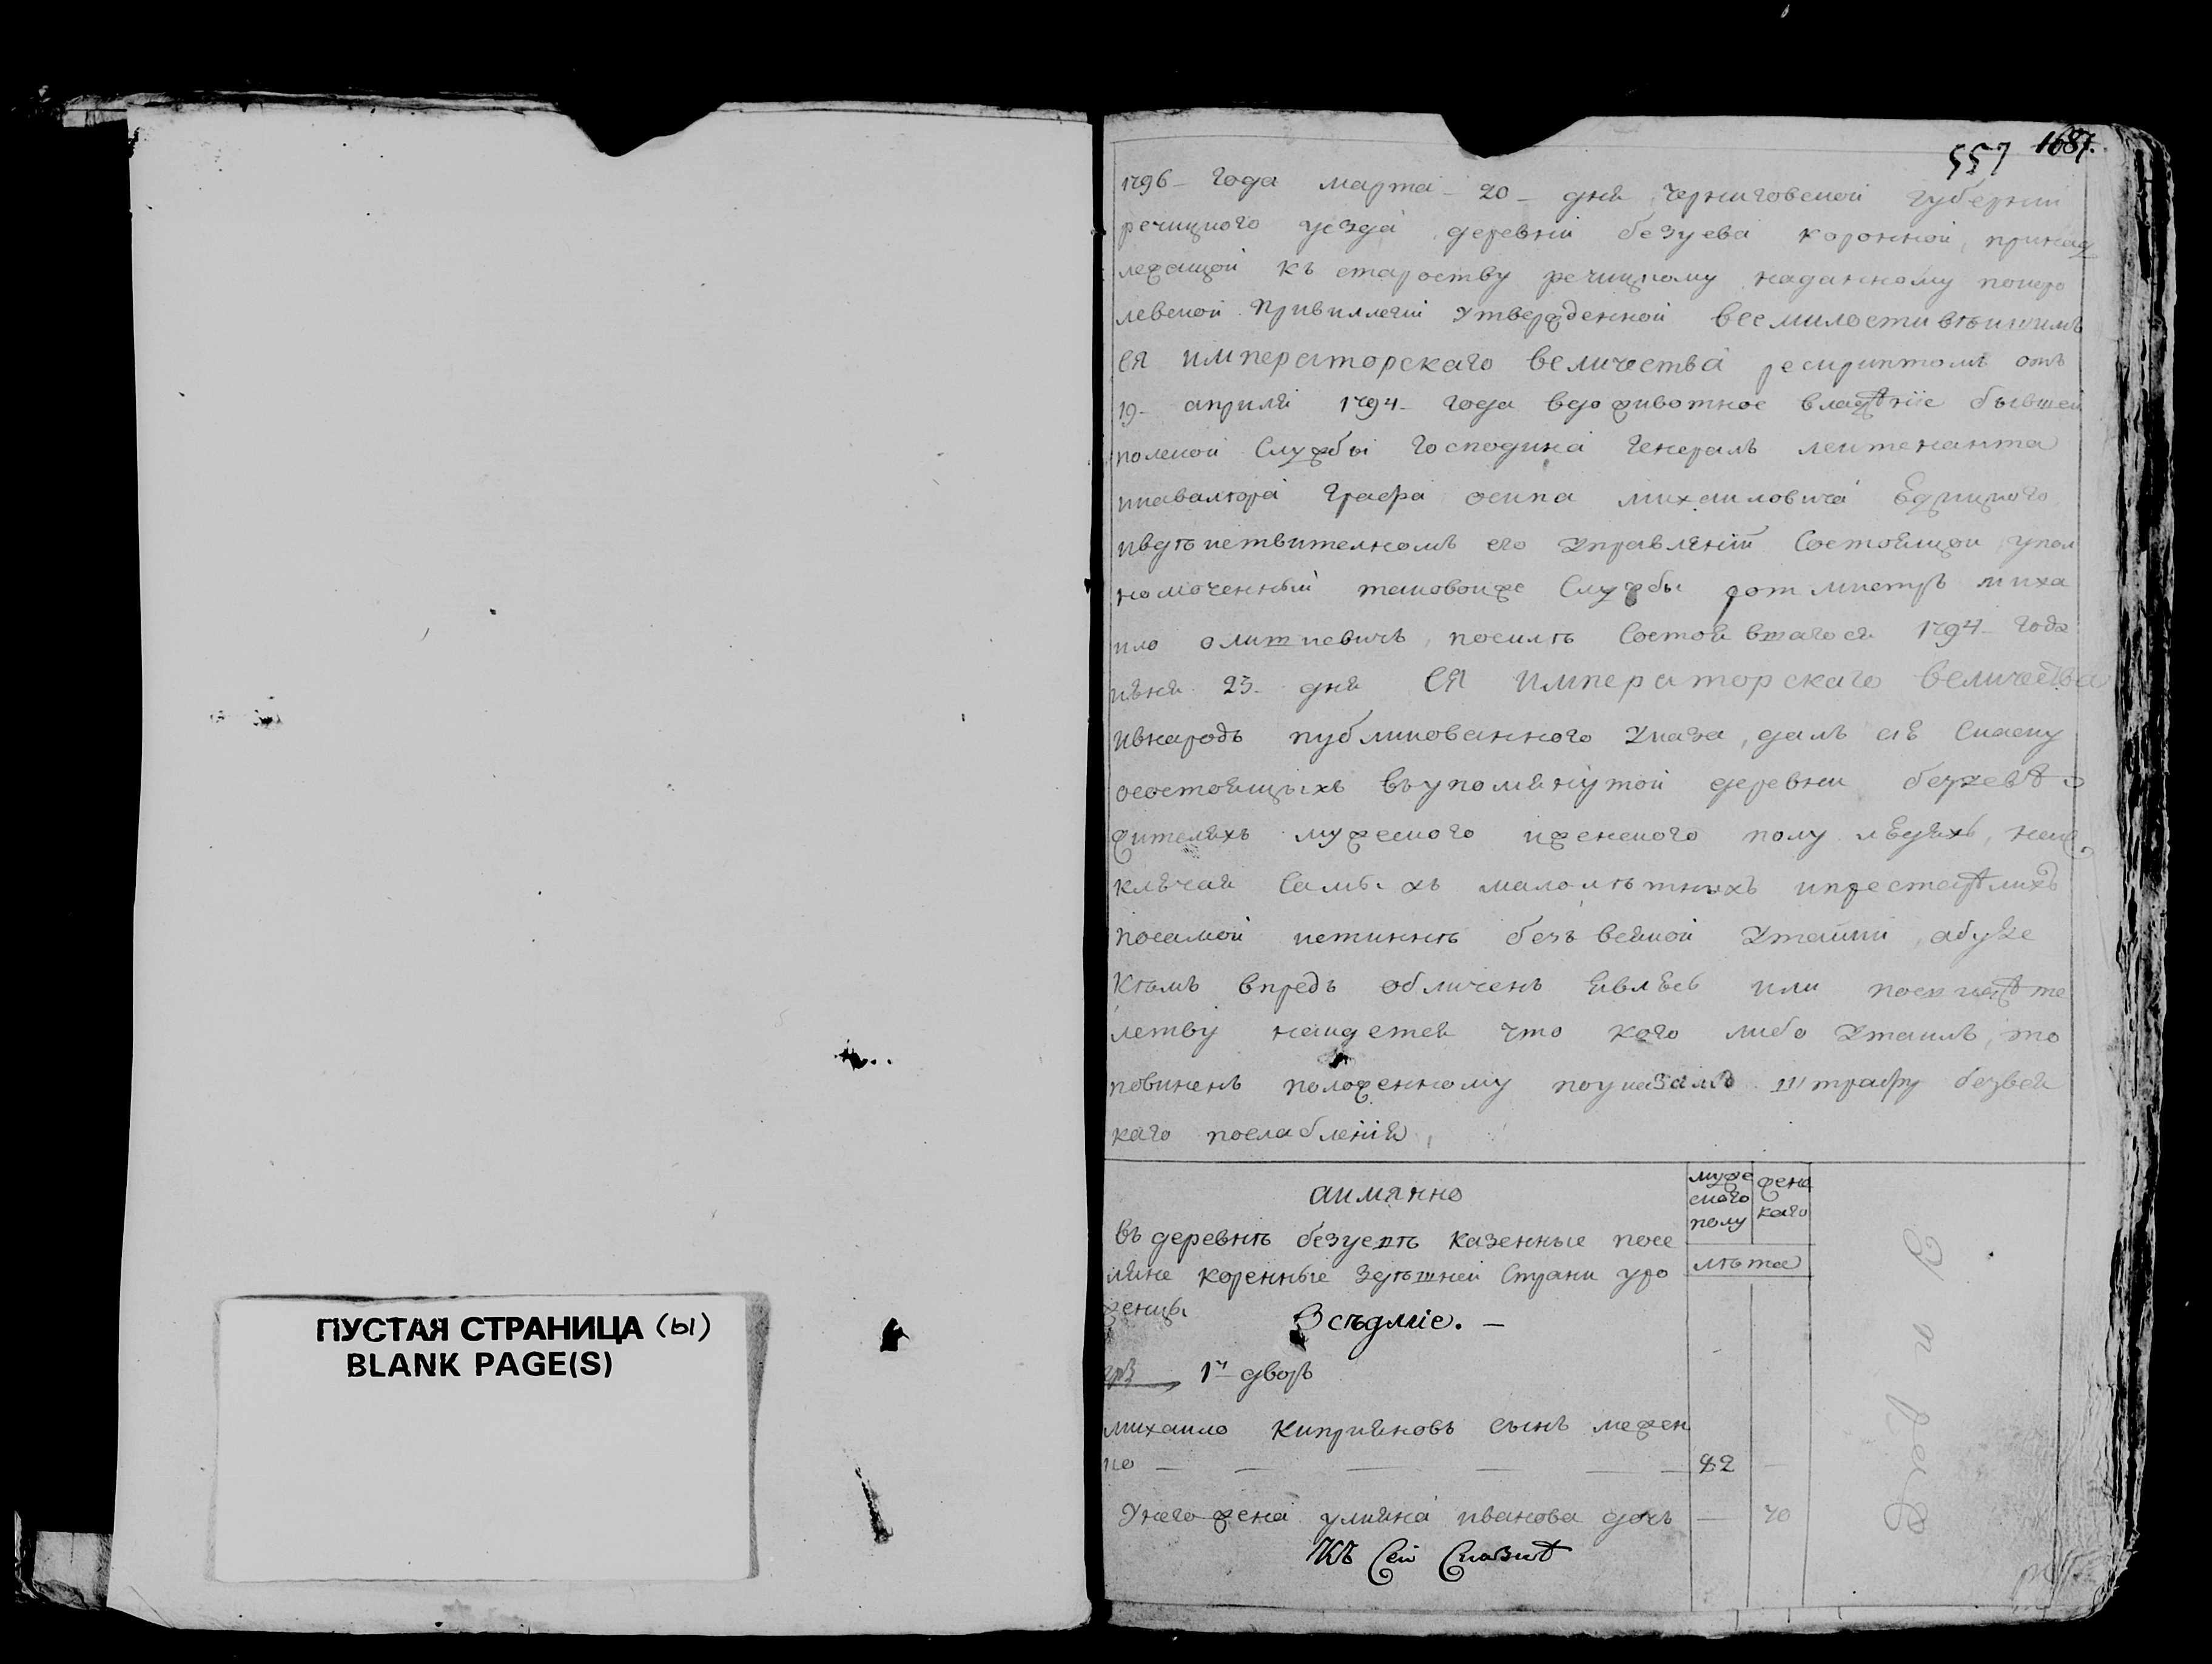 ПУСТАЯ СТРАНИЦА (ы)
BLANK PAGE(S)
557 1687.
1796 - года марта - 20 - дня черниговской губернии
речицкого уезда деревни безуева коронной, принад
лежащой къ староству речицкому наданному покоро
левской привиллегии утвержденной всемилостивѣишимъ
ея императорскаго величества рескриптомъ отъ
19 - апреля 1794 - года вдоживотное владѣніе бывшей
полской службы господина генералъ леитенанта
икавалера графа осипа михаиловича
ивдѣиствителномъ его управленіи состоящои упол
номоченный таковоиже службы ротмистръ миха
ило посилѣ состоявшагося 1794 - года
июня 23 - дня ея императорскаго величества
ивнародъ публикованного указа, далъ сію сказку
осостоящыхъ въупомянутой деревни безуевѣ
жителяхъ мужеского иженского полу людяхъ, неис
ключая самыхъ малолѣтныхъ ипрестарѣлихъ
посамой истиннѣ безъ всякой утайки, абуде
кѣмъ впредь обличенъ явлюсь или поскидѣте
лству наидется что кого либо утаилъ, то
повиненъ положенному поуказамъ штрафу безвся
каго послабленія,
аимянно
муже
ского
полу
жен
каго
лѣта
въ деревнѣ безуевѣ казенные посе
ляне коренные здѣшней страни уро
женцы
1й дворъ
михаило киприяновъ сынъ межен
ко — — — — — 82 —
унего жена улияна иванова дочь — 70
Къ сей сказкѣ